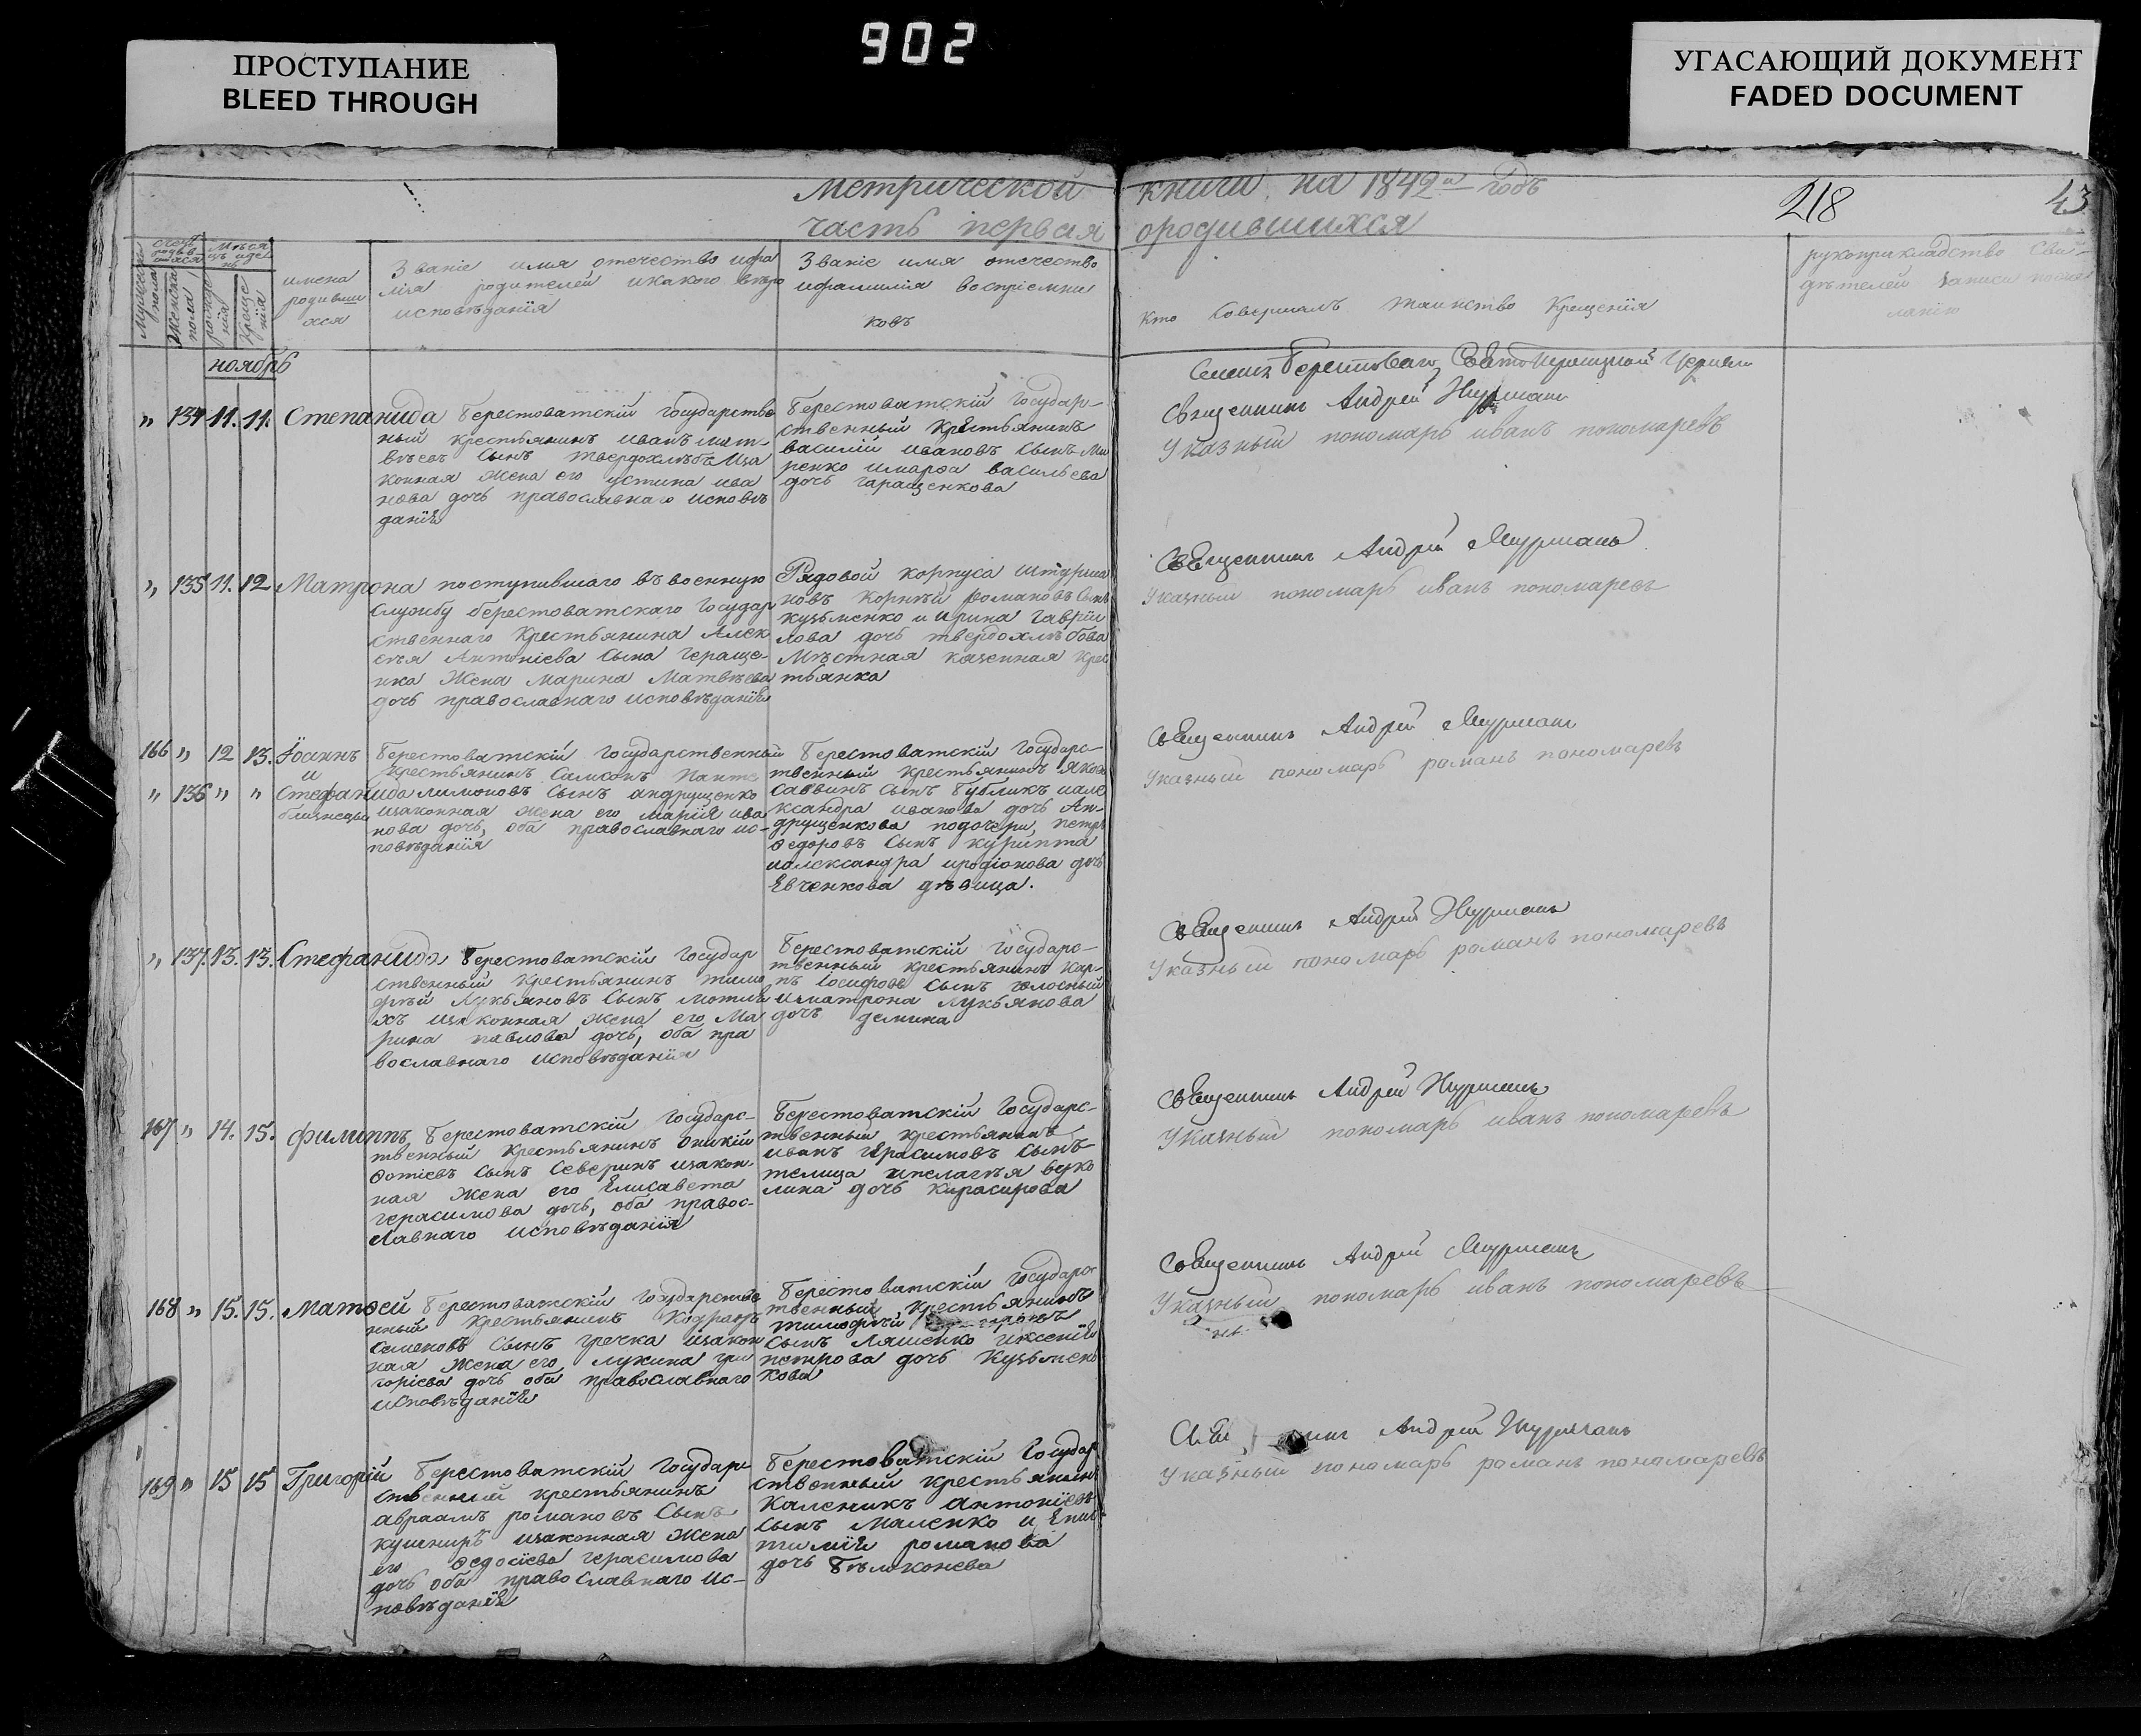 902
ПРОСТУПАНИЕ
BLEED THROUGH
УГАСАЮЩИЙ ДОКУМЕНТ
FADED DOCUMENT
метрической книги на 1842й годъ
часть первая ородившихся
218
43
Мужеска пола
Женска пола
рожденія
Крещенія
имена
родивши
хся
Званіе имя отечество ифа
милія родителей икакого вѣро
исповѣданія
Званіе имя отечество
ифамилія воспріемни
ковъ
Кто Совершалъ таинство Крещенія
рукоприкладство Сви-
дѣтелей записи поже
ланію
ноябрь
„ 134 11. 11. Степанида
Берестоватскій государстве
ный крестьянинъ иванъ мат-
вѣевъ сынъ твердохлѣбъ иза
конная жена его устина ива
нова дочь православнаго исповѣ
данія
Берестоватскій государ-
ственный крестьянинъ
василій ивановъ сынъ Ми
ренко имарѳа васильева
дочь гаращенкова
Берестоваго Святотроицкой Церкви
Священникъ Андрей
Указный пономарь иванъ пономаревъ
„ 135 11. 12 Матрона
поступившаго въ военную
службу берестоватскаго государ
ственнаго крестьянина Алек
сѣя Антоніева сына гераще-
нка жена марина Матвѣева
дочь православнаго исповѣданія
Рядовой корпуса штурма
новъ корнѣй романовъ сынъ
кузьменко и ирина гаврии
лова дочь твердохлѣбова
Мѣстная казенная крес
тьянка
Священникъ Андрей
Указный пономарь иванъ пономаревъ
166 „ 12 13. Іоаннъ
и
„ 136 „ „ Стефанида
близнецы
Берестоватскій государственный
крестьянинъ Самсонъ Панте
лимоновъ сынъ андрущенко
изаконная жена его марія ива
нова дочь, оба православнаго ис-
повѣданія
Берестоватскій государс-
твенный крестьянинъ Яковъ
саввинъ сынъ бубликъ иале
ксандра иванова дочь Ан-
друщенкова подочери, петръ
ѳедоровъ сынъ курипта
иалександра иродіонова дочь
Евченкова дѣвица.
Священникъ Андрей
Указный пономарь романъ пономаревъ
„ 137. 13. 13. Стефанида
Берестоватскій государ
ственный крестьянинъ тимо
фѣй Лукьяновъ сынъ
изаконная жена его Ма
рина павлова дочь, оба пра
вославнаго исповѣданія
Берестоватскій государс-
твенный крестьянинъ кар-
пъ іосифовъ сынъ
иматрона Лукьянова
дочь демина
Священникъ Андрей
Указный пономарь романъ пономаревъ
167 „ 14. 15. филиппъ
Берестоватскій государс-
твенный крестьянинъ Оникій
ѳотіевъ сынъ Северинъ изакон-
ная жена его Елисавета
герасимова дочь, оба правос-
лавнаго исповѣданія
Берестоватскій государс-
твенный крестьянинъ
иванъ Герасимовъ сынъ
телица ипелагѣя вуко
лина дочь Кирасирова
Священникъ Андрей
Указный пономарь иванъ пономаревъ
168 „ 15. 15. матѳей
Берестоватскій государстве
нный крестьянинъ Кодратъ
семеновъ сынъ гречка изакон
ная жена его лукина гри
горіева дочь оба православнаго
исповѣданія
Берестоватскій государс
твенный крестьянинъ
тимофѣй
сынъ Ляшенко иксенія
петрова дочь Кузьменко
кова
Священникъ Андрей
Указный пономарь иванъ пономаревъ
169 „ 15 15 Григорій
Берестоватскій государ
ственный крестьянинъ
авраамъ романовъ сынъ
кушниръ изаконная жена
его ѳедосіева герасимова
дочь оба православнаго ис-
повѣданія
Берестоватскій государ
ственный крестьянинъ
каленикъ антоніевъ
сынъ маленко и
романова
дочь Бѣлоконева
Андрей
Указный пономарь романъ пономаревъ